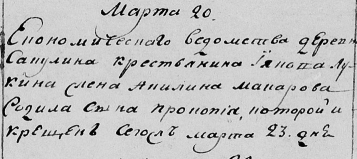 Марта 20.
Економическаго ведомства дерев
Сапулина крестьянина Iякопа Лу
кина жена Акилина Макарова
родила сына Прокопiя, которой и
крещенъ сегожъ марта 23. дня